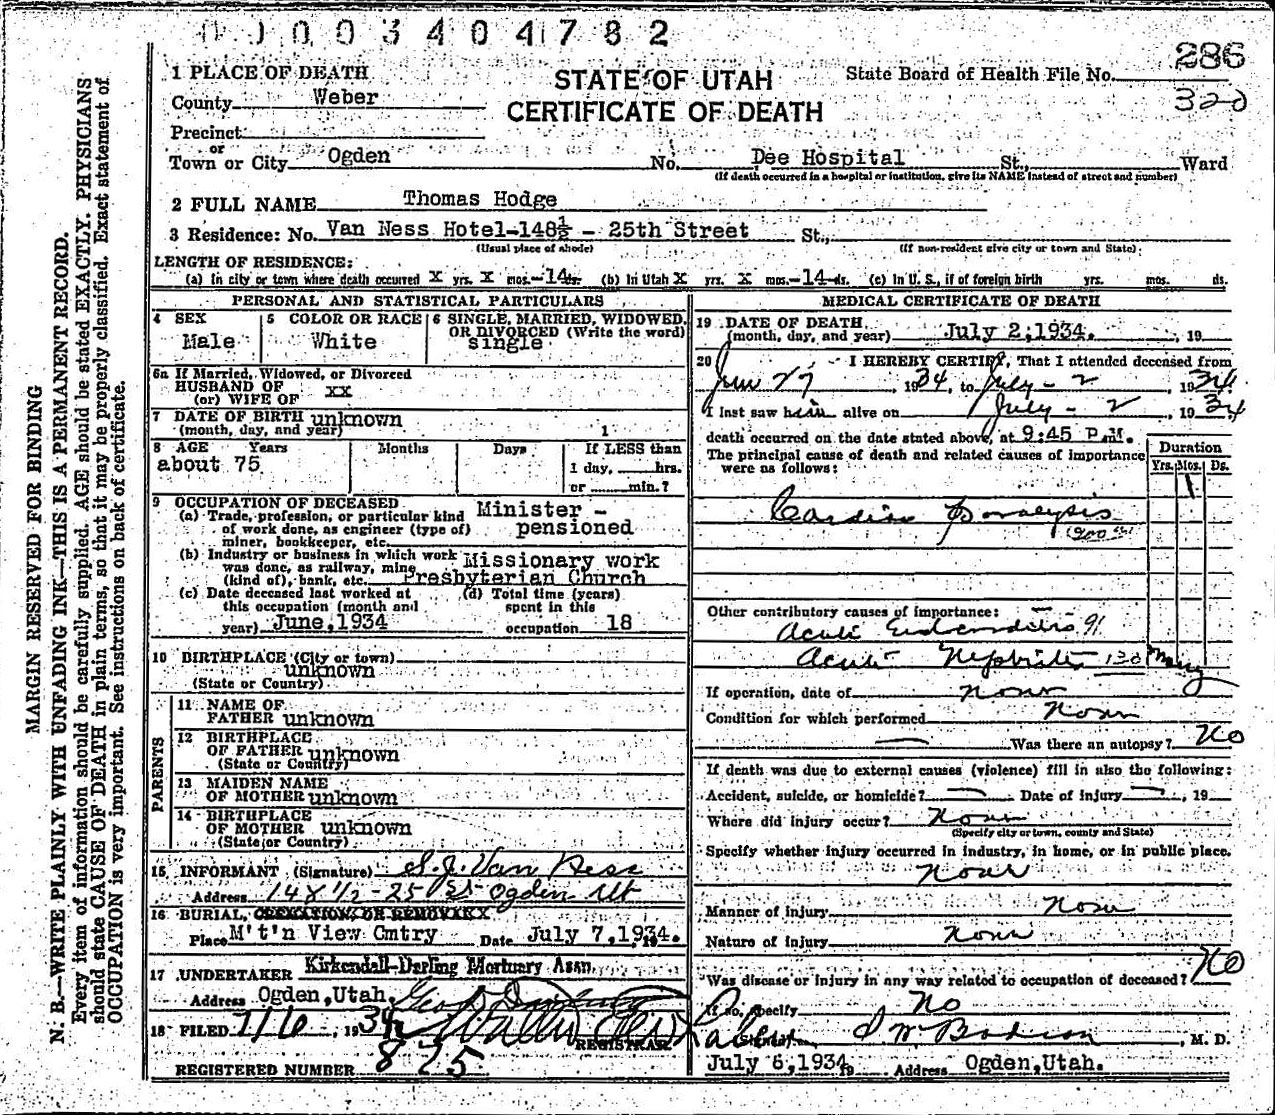 0003404782
286
320
1 PLACE OF DEATH
STATE OF UTAH
CERTIFICATE OF DEATH
State Board of Health File No.
County Weber
Precinct
or
Town or City Ogden No. Dee Hospital St., Ward
(If death occurred in a hospital or institution, give its NAME instead of street and number)
2 FULL NAME Thomas Hodge
3 Residence: No. Van Ness Hotel-148½ - 25th Street St.,
(Usual place of abode) (If non-resident give city or town and State)
LENGTH OF RESIDENCE:
(a) In city or town where death occurred X yrs. X mos. -14 ds. (b) In Utah X yrs. X mos. -14- ds. (c) In U. S., if of foreign birth yrs. mos. ds.
PERSONAL AND STATISTICAL PARTICULARS
4 SEX Male
5 COLOR OR RACE White
6 SINGLE, MARRIED, WIDOWED, OR DIVORCED (Write the word) single
6a If Married, Widowed, or Divorced
HUSBAND OF
(or) WIFE OF xx
7 DATE OF BIRTH unknown
(month, day, and year)
8 AGE Years Months Days If LESS than
about 75 1 day, hrs.
or min.?
9 OCCUPATION OF DECEASED
(a) Trade, profession, or particular kind of work done, as engineer (type of) miner, bookkeeper, etc. Minister - pensioned
(b) Industry or business in which work was done, as railway, mine (kind of), bank, etc. Missionary work Presbyterian Church
(c) Date deceased last worked at this occupation (month and year) June, 1934
(d) Total time (years) spent in this occupation 18
10 BIRTHPLACE (City or town) unknown
(State or Country)
PARENTS
11 NAME OF FATHER unknown
12 BIRTHPLACE OF FATHER unknown
(State or Country)
13 MAIDEN NAME OF MOTHER unknown
14 BIRTHPLACE OF MOTHER unknown
(State or Country)
15 INFORMANT (Signature) S. J. Van Ness
Address 148 1/2 - 25 St Ogden Ut
16 BURIAL, CREMATION, OR REMOVAL
Place M't'n View Cmtry Date July 7, 1934.
17 UNDERTAKER Kirkendall-Darling Mortuary Assn.
Address Ogden, Utah.
18 FILED 7/6, 1934
REGISTRAR
REGISTERED NUMBER 875
MEDICAL CERTIFICATE OF DEATH
19 DATE OF DEATH
(month, day, and year) July 2, 1934. , 19
20 I HEREBY CERTIFY, That I attended deceased from
June 27, 1934, to July - 2, 1934
I last saw him alive on July - 2, 1934
death occurred on the date stated above, at 9:45 P.M.
The principal cause of death and related causes of importance were as follows:
Duration
Yrs. Mos. Ds.
1
Cardiac Paralysis
Other contributory causes of importance:
Acute Endocarditis 91
Acute Nephritis 130
If operation, date of none
Condition for which performed None
Was there an autopsy? No
If death was due to external causes (violence) fill in also the following:
Accident, suicide, or homicide? Date of injury , 19
Where did injury occur? None
(Specify city or town, county and State)
Specify whether injury occurred in industry, in home, or in public place.
None
Manner of injury None
Nature of injury None
Was disease or injury in any way related to occupation of deceased? No
If so, specify No
M. D.
July 6, 1934 Address Ogden, Utah.
MARGIN RESERVED FOR BINDING
N. B.—WRITE PLAINLY WITH UNFADING INK—THIS IS A PERMANENT RECORD.
Every item of information should be carefully supplied. AGE should be stated EXACTLY. PHYSICIANS
should state CAUSE OF DEATH in plain terms, so that it may be properly classified. Exact statement of
OCCUPATION is very important. See instructions on back of certificate.